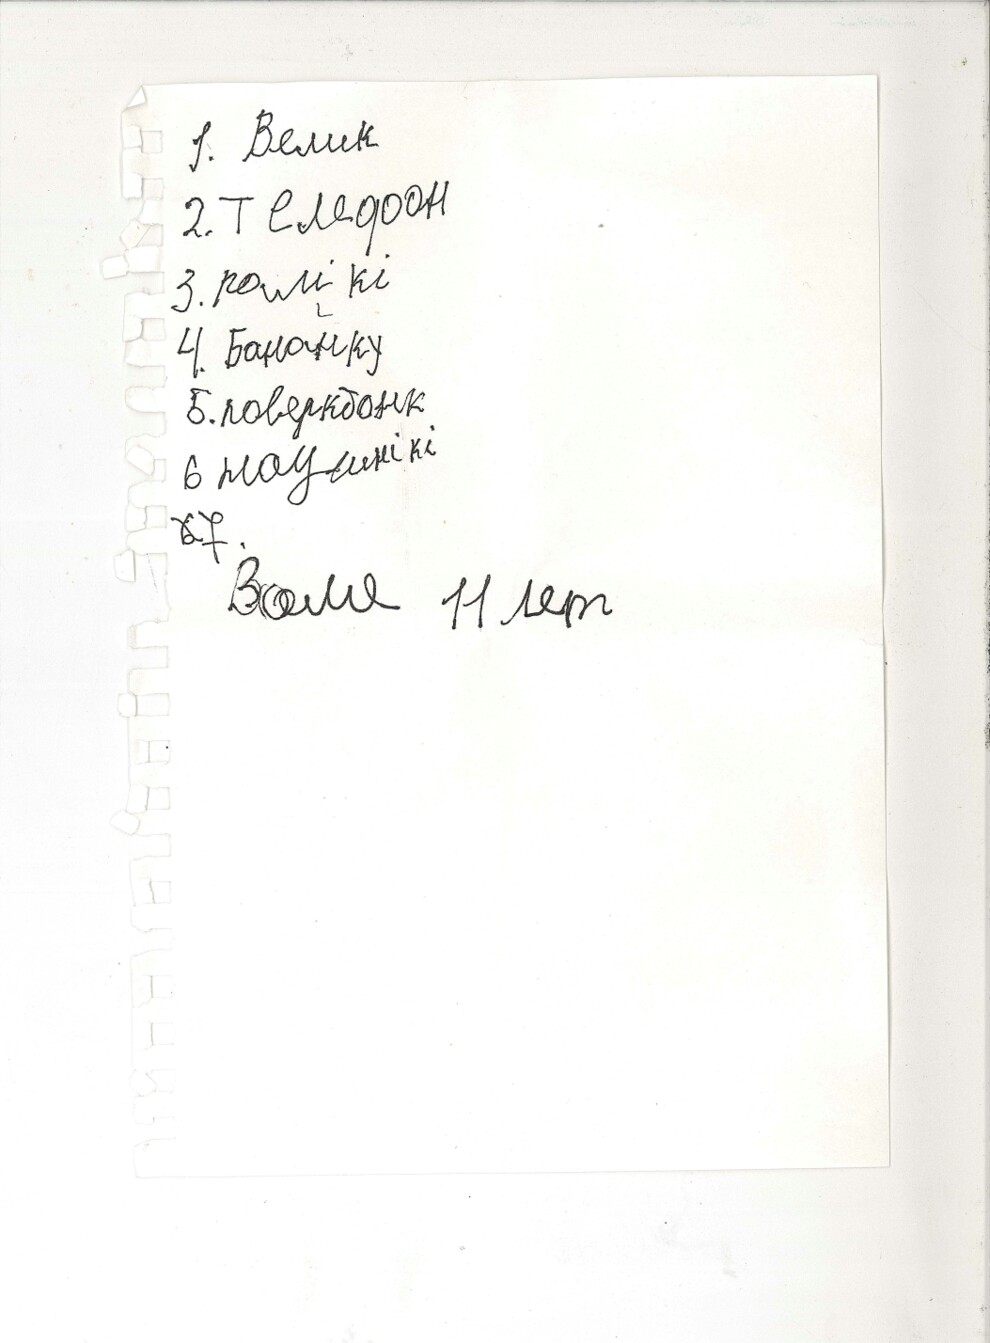 1. Велик
2. Телефон
3. ролікі
4. Бананку
5. поверкбанк
6 наушнікі
7.
Ваме 11 лет